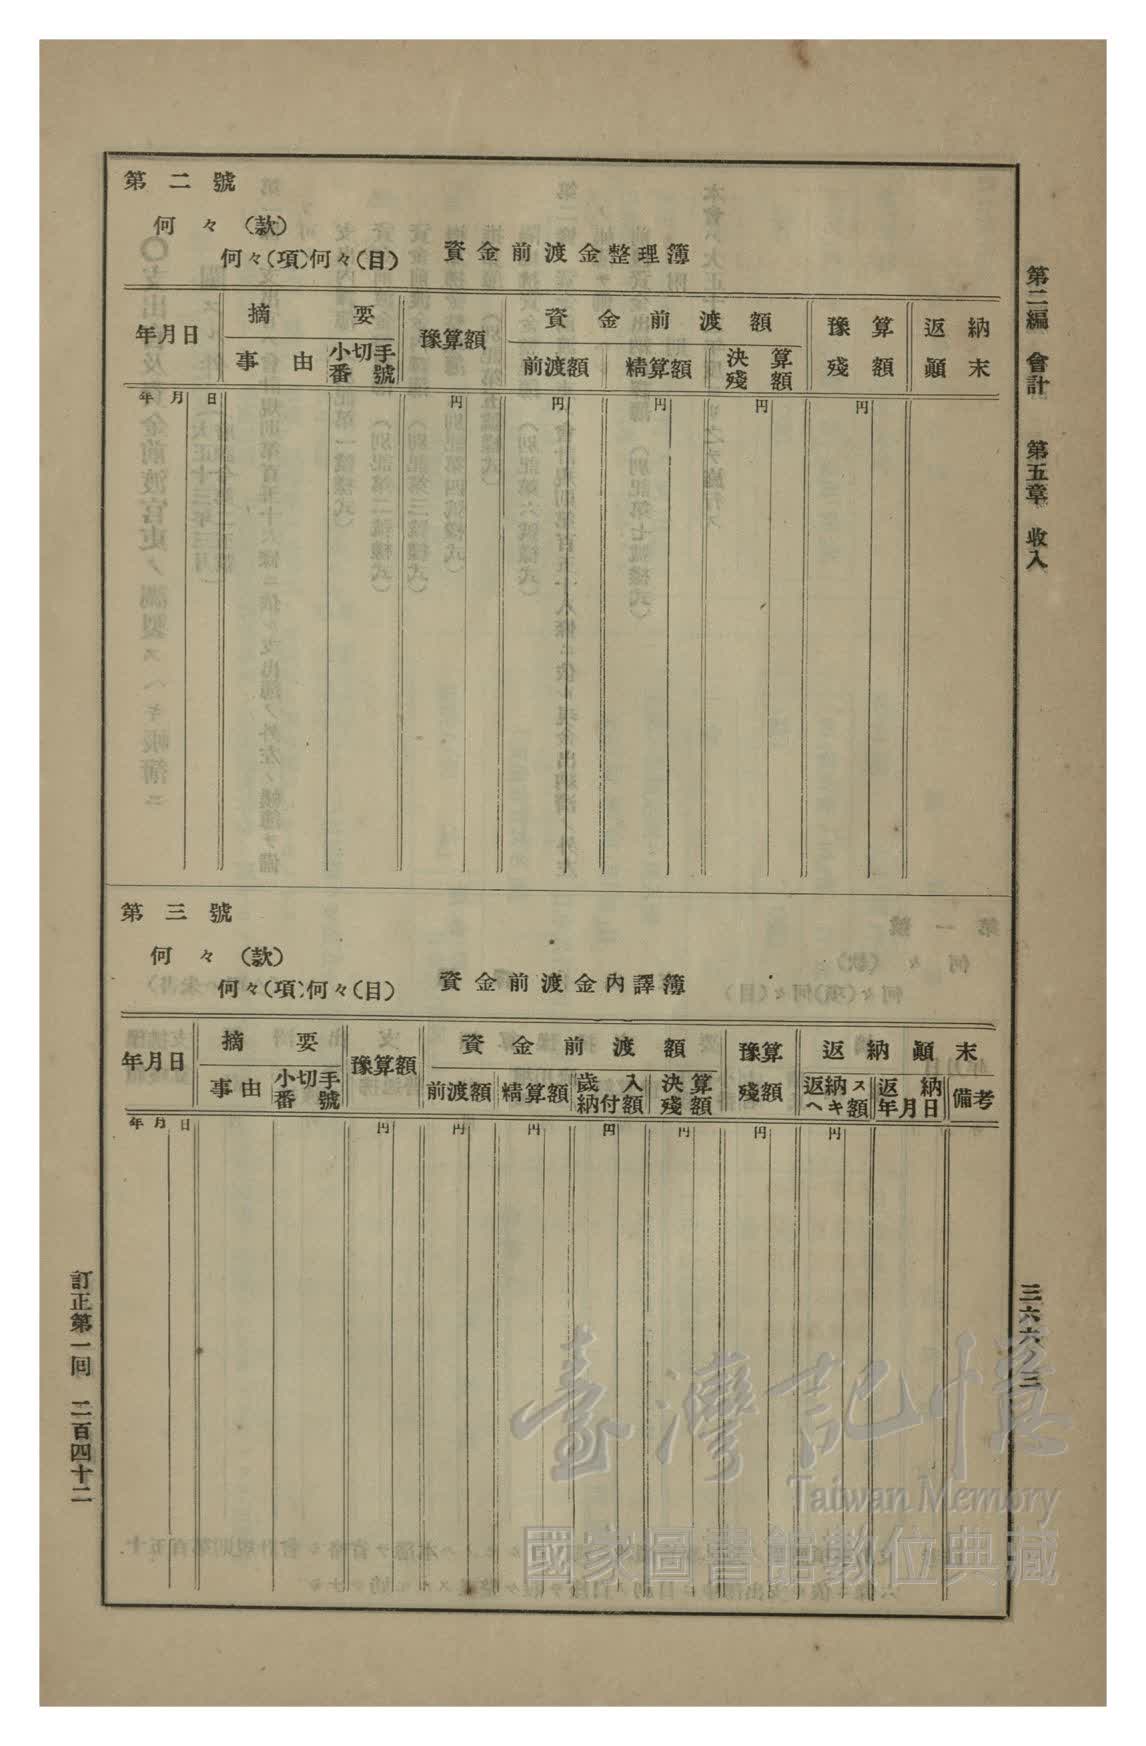 第二編　會計　第五章　收入
三六六ノ三
第二號
何々(款)
何々(項)何々(目)　資金前渡金整理簿
年月日　摘要　豫算額　資金前渡額　豫算殘額　返納顚末
事由　小切手番號　前渡額　精算額　決算殘額
年　月　日　円　円　円　円　円
第三號
何々(款)
何々(項)何々(目)　資金前渡金內譯簿
年月日　摘要　豫算額　資金前渡額　豫算殘額　返納顚末
事由　小切手番號　前渡額　精算額　歲入納付額　決算殘額　返納スヘキ額　返納年月日　備考
年　月　日　円　円　円　円　円　円　円
訂正第一回　二百四十二
臺灣記憶
Taiwan Memory
國家圖書館數位典藏